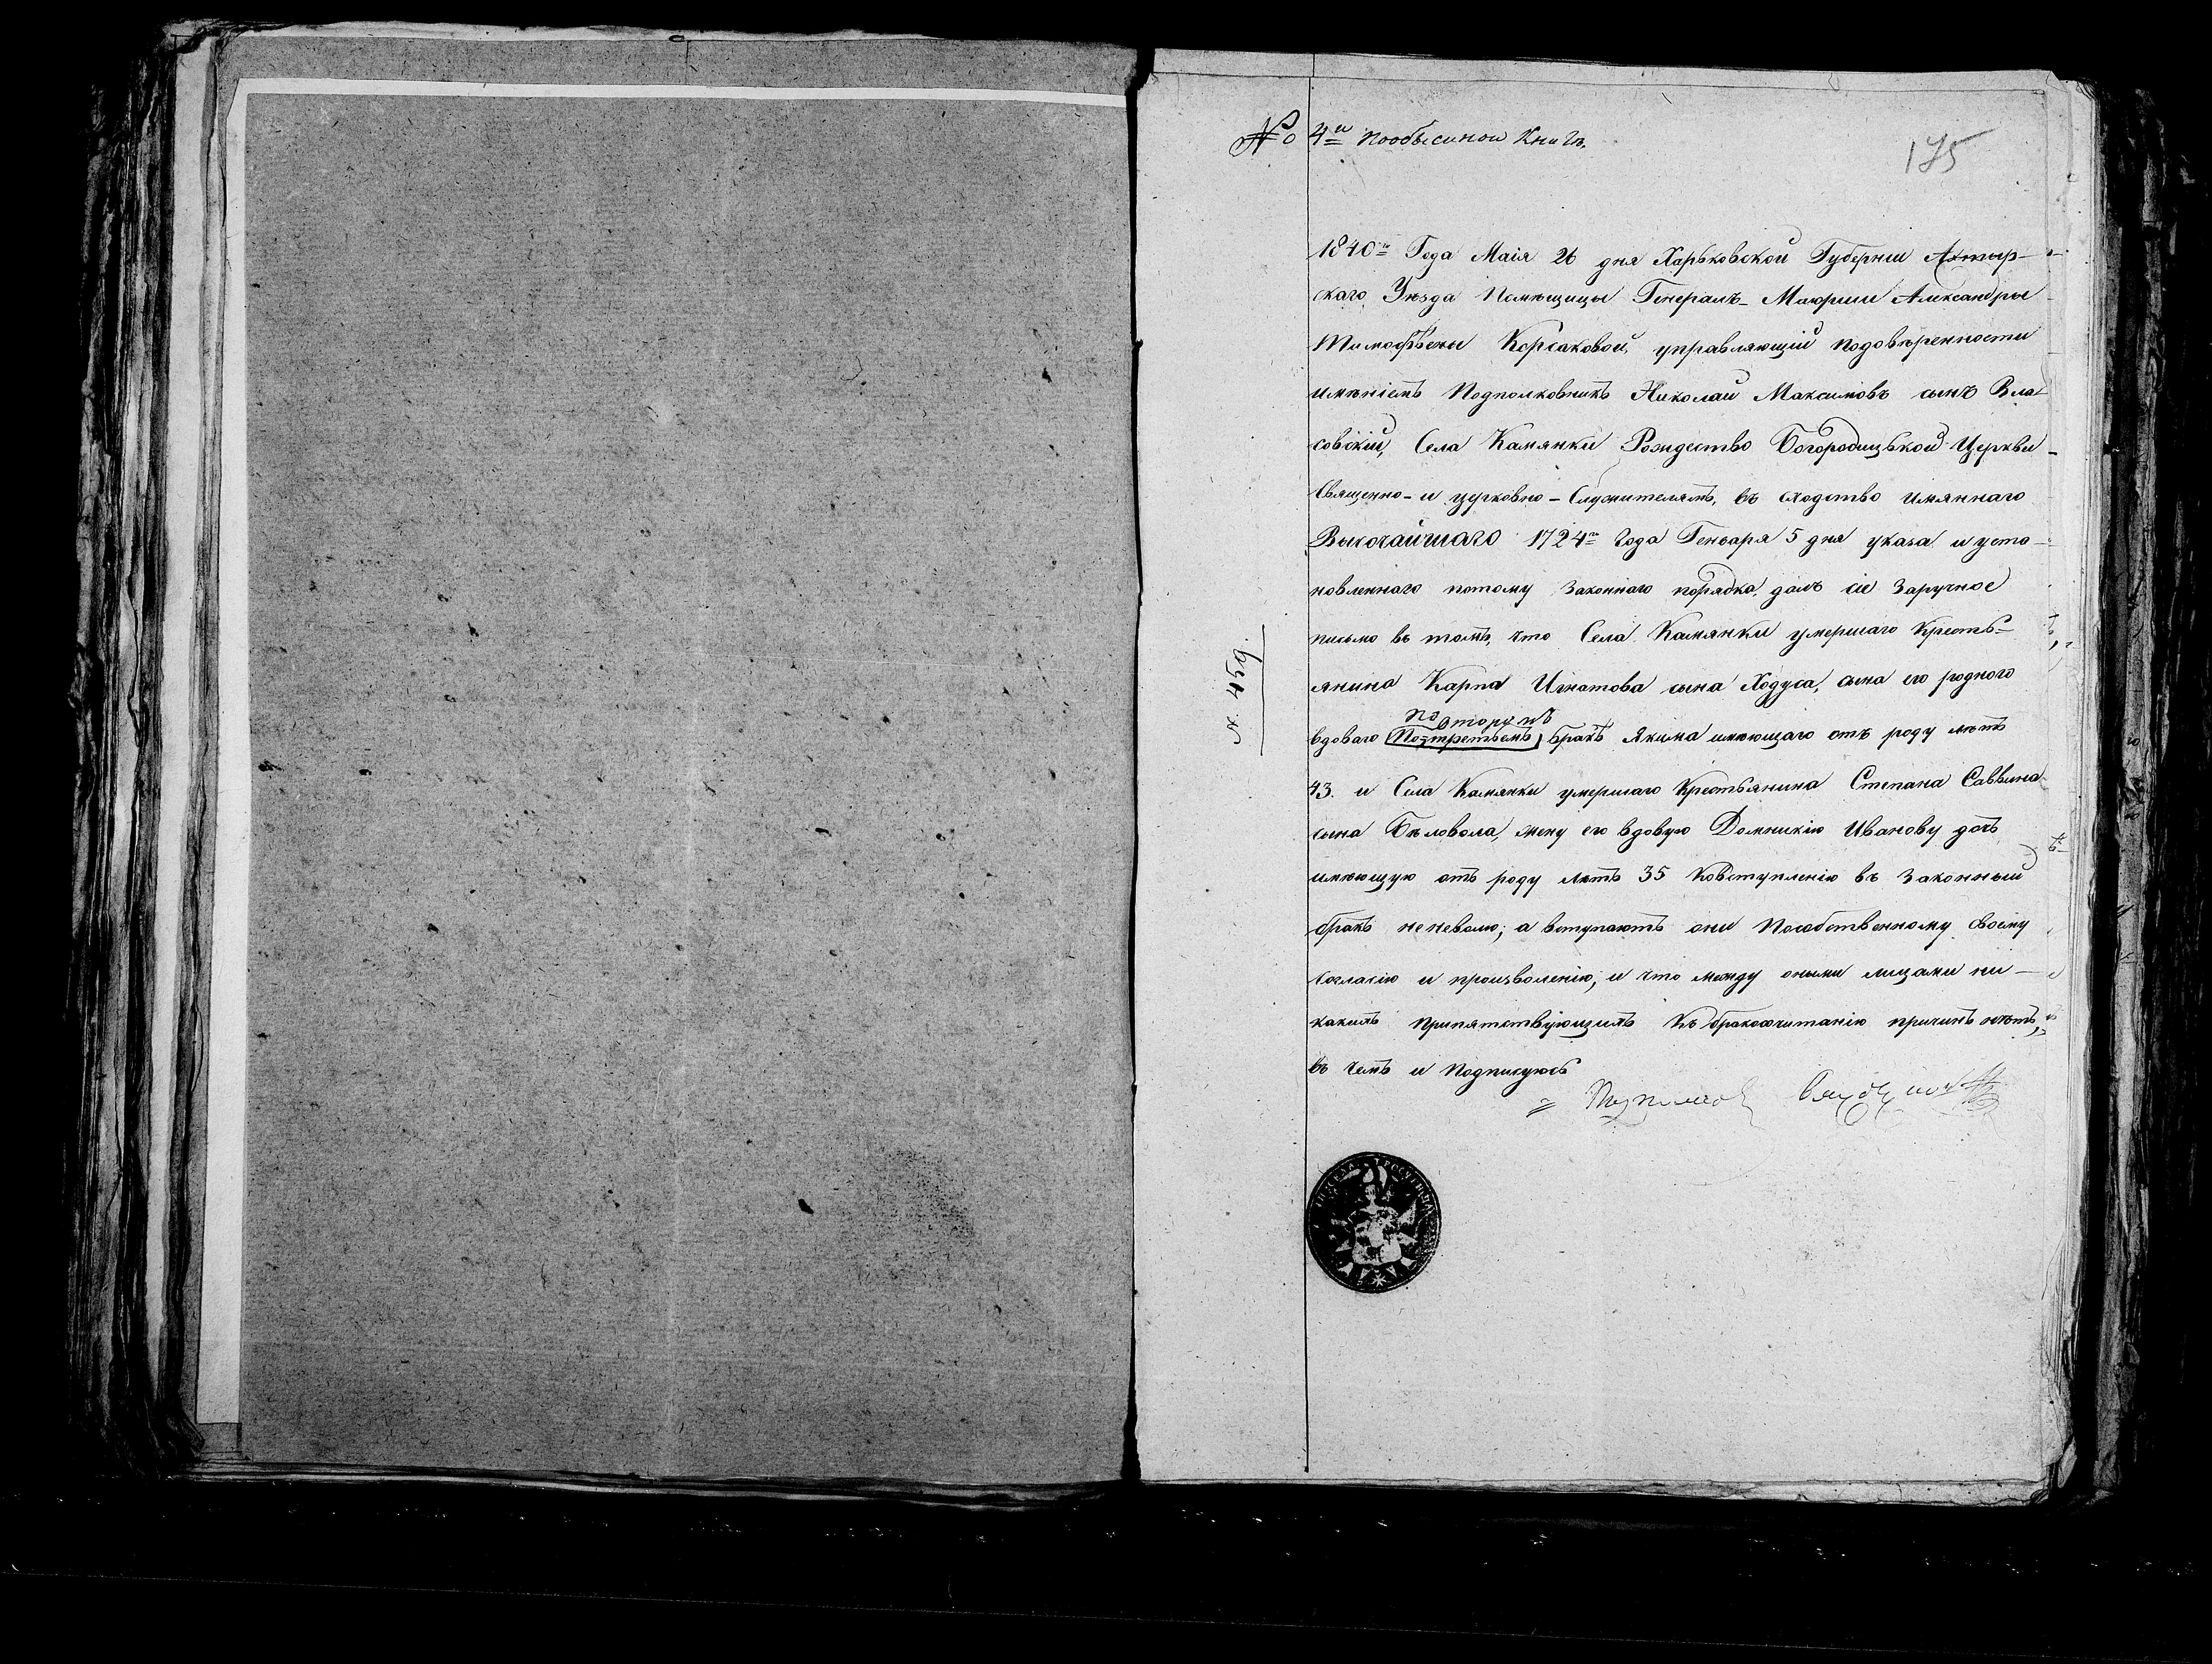 № 4й пообысиной Книгѣ.
175
1840го Года Маія 26 дня Харьковской Губерніи Ахтыр-
скаго Уѣзда Помѣщицы Генералъ-Маіорши Александры
Тимофѣевы Корсаковой, управляющій подовѣренности
имѣніемъ Подполковникъ Николай Максимовъ сынъ Вла-
совскій, Села Камянки Рождество Богородицькой Церкви
Священно- и церковно-Служителямъ, въ сходство имяннаго
Высочайшаго 1724го Года Генваря 5 дня указа и уста-
новленнаго потому законнаго порядка, далъ сіе Заручное
письмо въ томъ, что Села Камянки умершаго Кресть-
янина Карпа Игнатова сына Ходуса, сына его роднаго
повторумъ
вдоваго Потретьемъ бракѣ Якима имѣющаго отъ роду лѣтъ
43. и Села Камянки умершаго Крестьянина Степана Саввина
сына Бѣловола, жену его вдовую Домникію Иванову дочь
имѣющую отъ роду лѣтъ 35 Ковступленію въ Законный
бракъ неневолю; а вступаютъ они Пособственному своему
согласію и произволенію; и что между оными лицами ни-
какихъ препятствующихъ Къ бракосочитанію причинъ нѣтъ,
въ чемъ и Подписуюсь
№ 459.